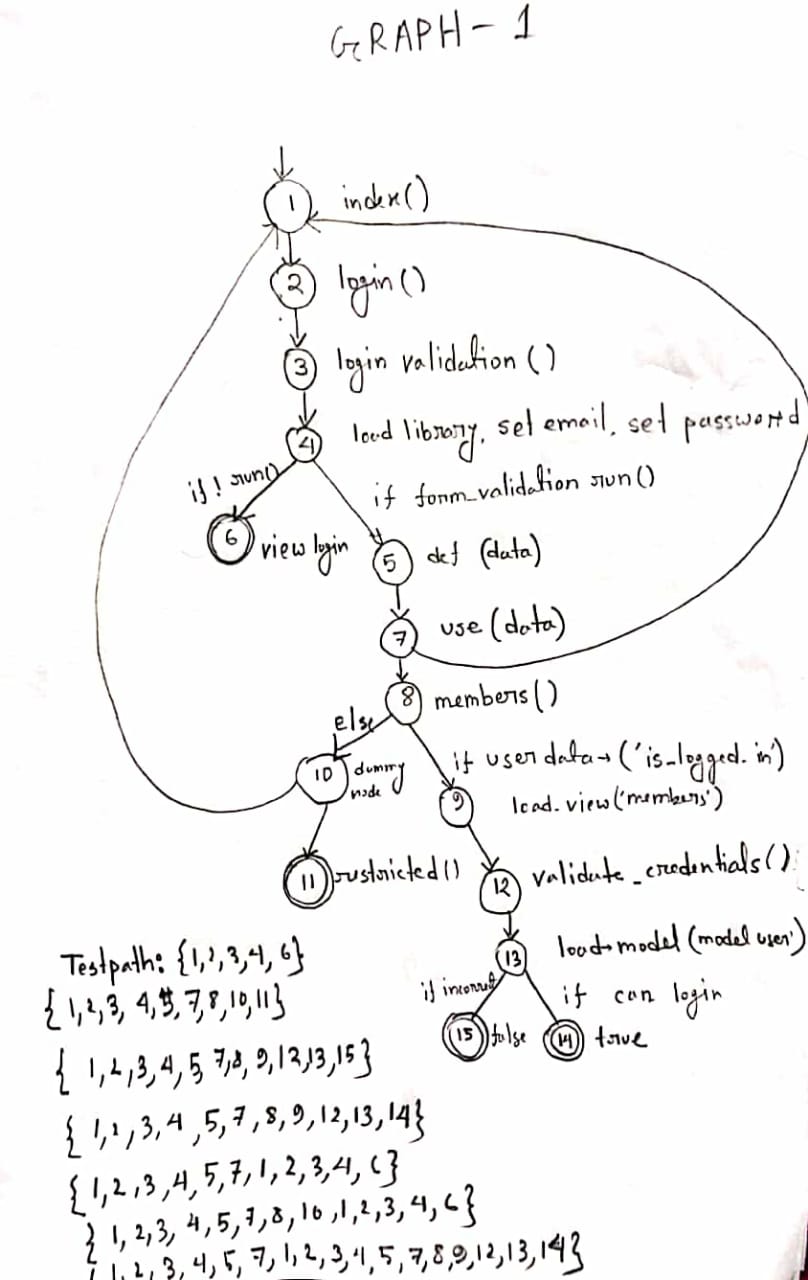 GRAPH-1
1 index()
2 login()
3 login validation()
4 load library, set email, set password
if ! run()
if form_validation run()
6 view login
5 def (data)
7 use (data)
8 members()
else
if user data→('is_logged.in')
10 dummy node
9 load.view('members')
11 restricted()
12 validate_credentials()
13 load→model (model user')
if incorrect
if can login
15 false
14 true
Testpath: {1,2,3,4,6}
{1,2,3,4,5,7,8,10,11}
{1,2,3,4,5 7,8,9,12,13,15}
{1,2,3,4,5,7,8,9,12,13,14}
{1,2,3,4,5,7,1,2,3,4,6}
{1,2,3,4,5,7,8,10,1,2,3,4,6}
{1,2,3,4,5,7,1,2,3,4,5,7,8,9,12,13,14}